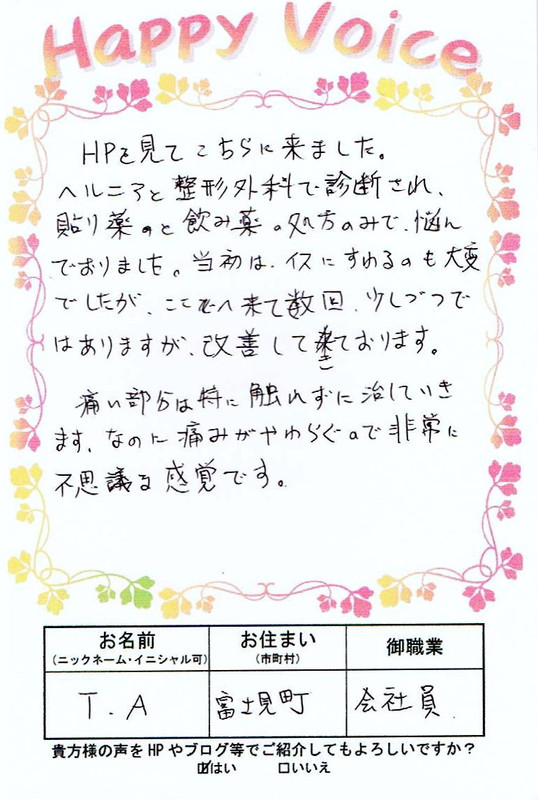 Happy Voice
HPを見てこちらに来ました。
ヘルニアと整形外科で診断され、
貼り薬のと飲み薬の処方のみで、悩ん
でおりました。当初は、イスにすわるのも大変
でしたが、ここへ来て数回、少しづつで
はありますが、改善して来ております。
き
痛い部分は特に触れずに治していき
ます、なのに痛みがやわらぐので非常に
不思議な感覚です。
お名前 お住まい 御職業
(ニックネーム・イニシャル可) (市町村)
T.A 富士見町 会社員.
貴方様の声をHPやブログ等でご紹介してもよろしいですか？
☑はい □いいえ